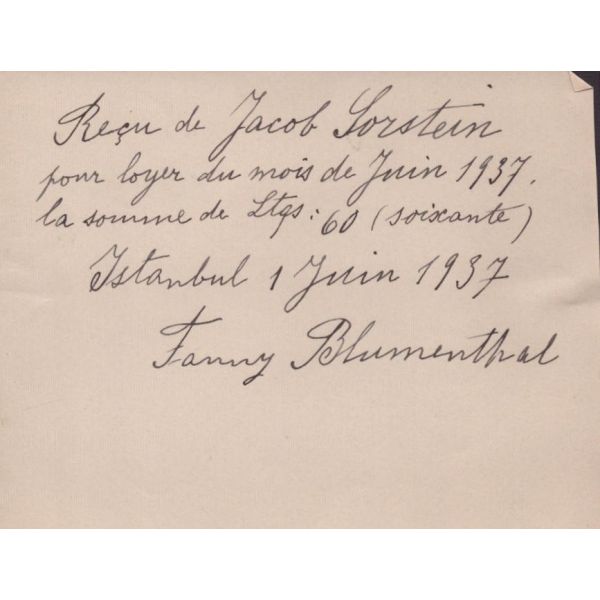 Reçu de Jacob Lorstein
pour loyer du mois de Juin 1937.
la somme de Ltqs: 60 (soixante)
Istanbul 1 Juin 1937
Fanny Blumenthal